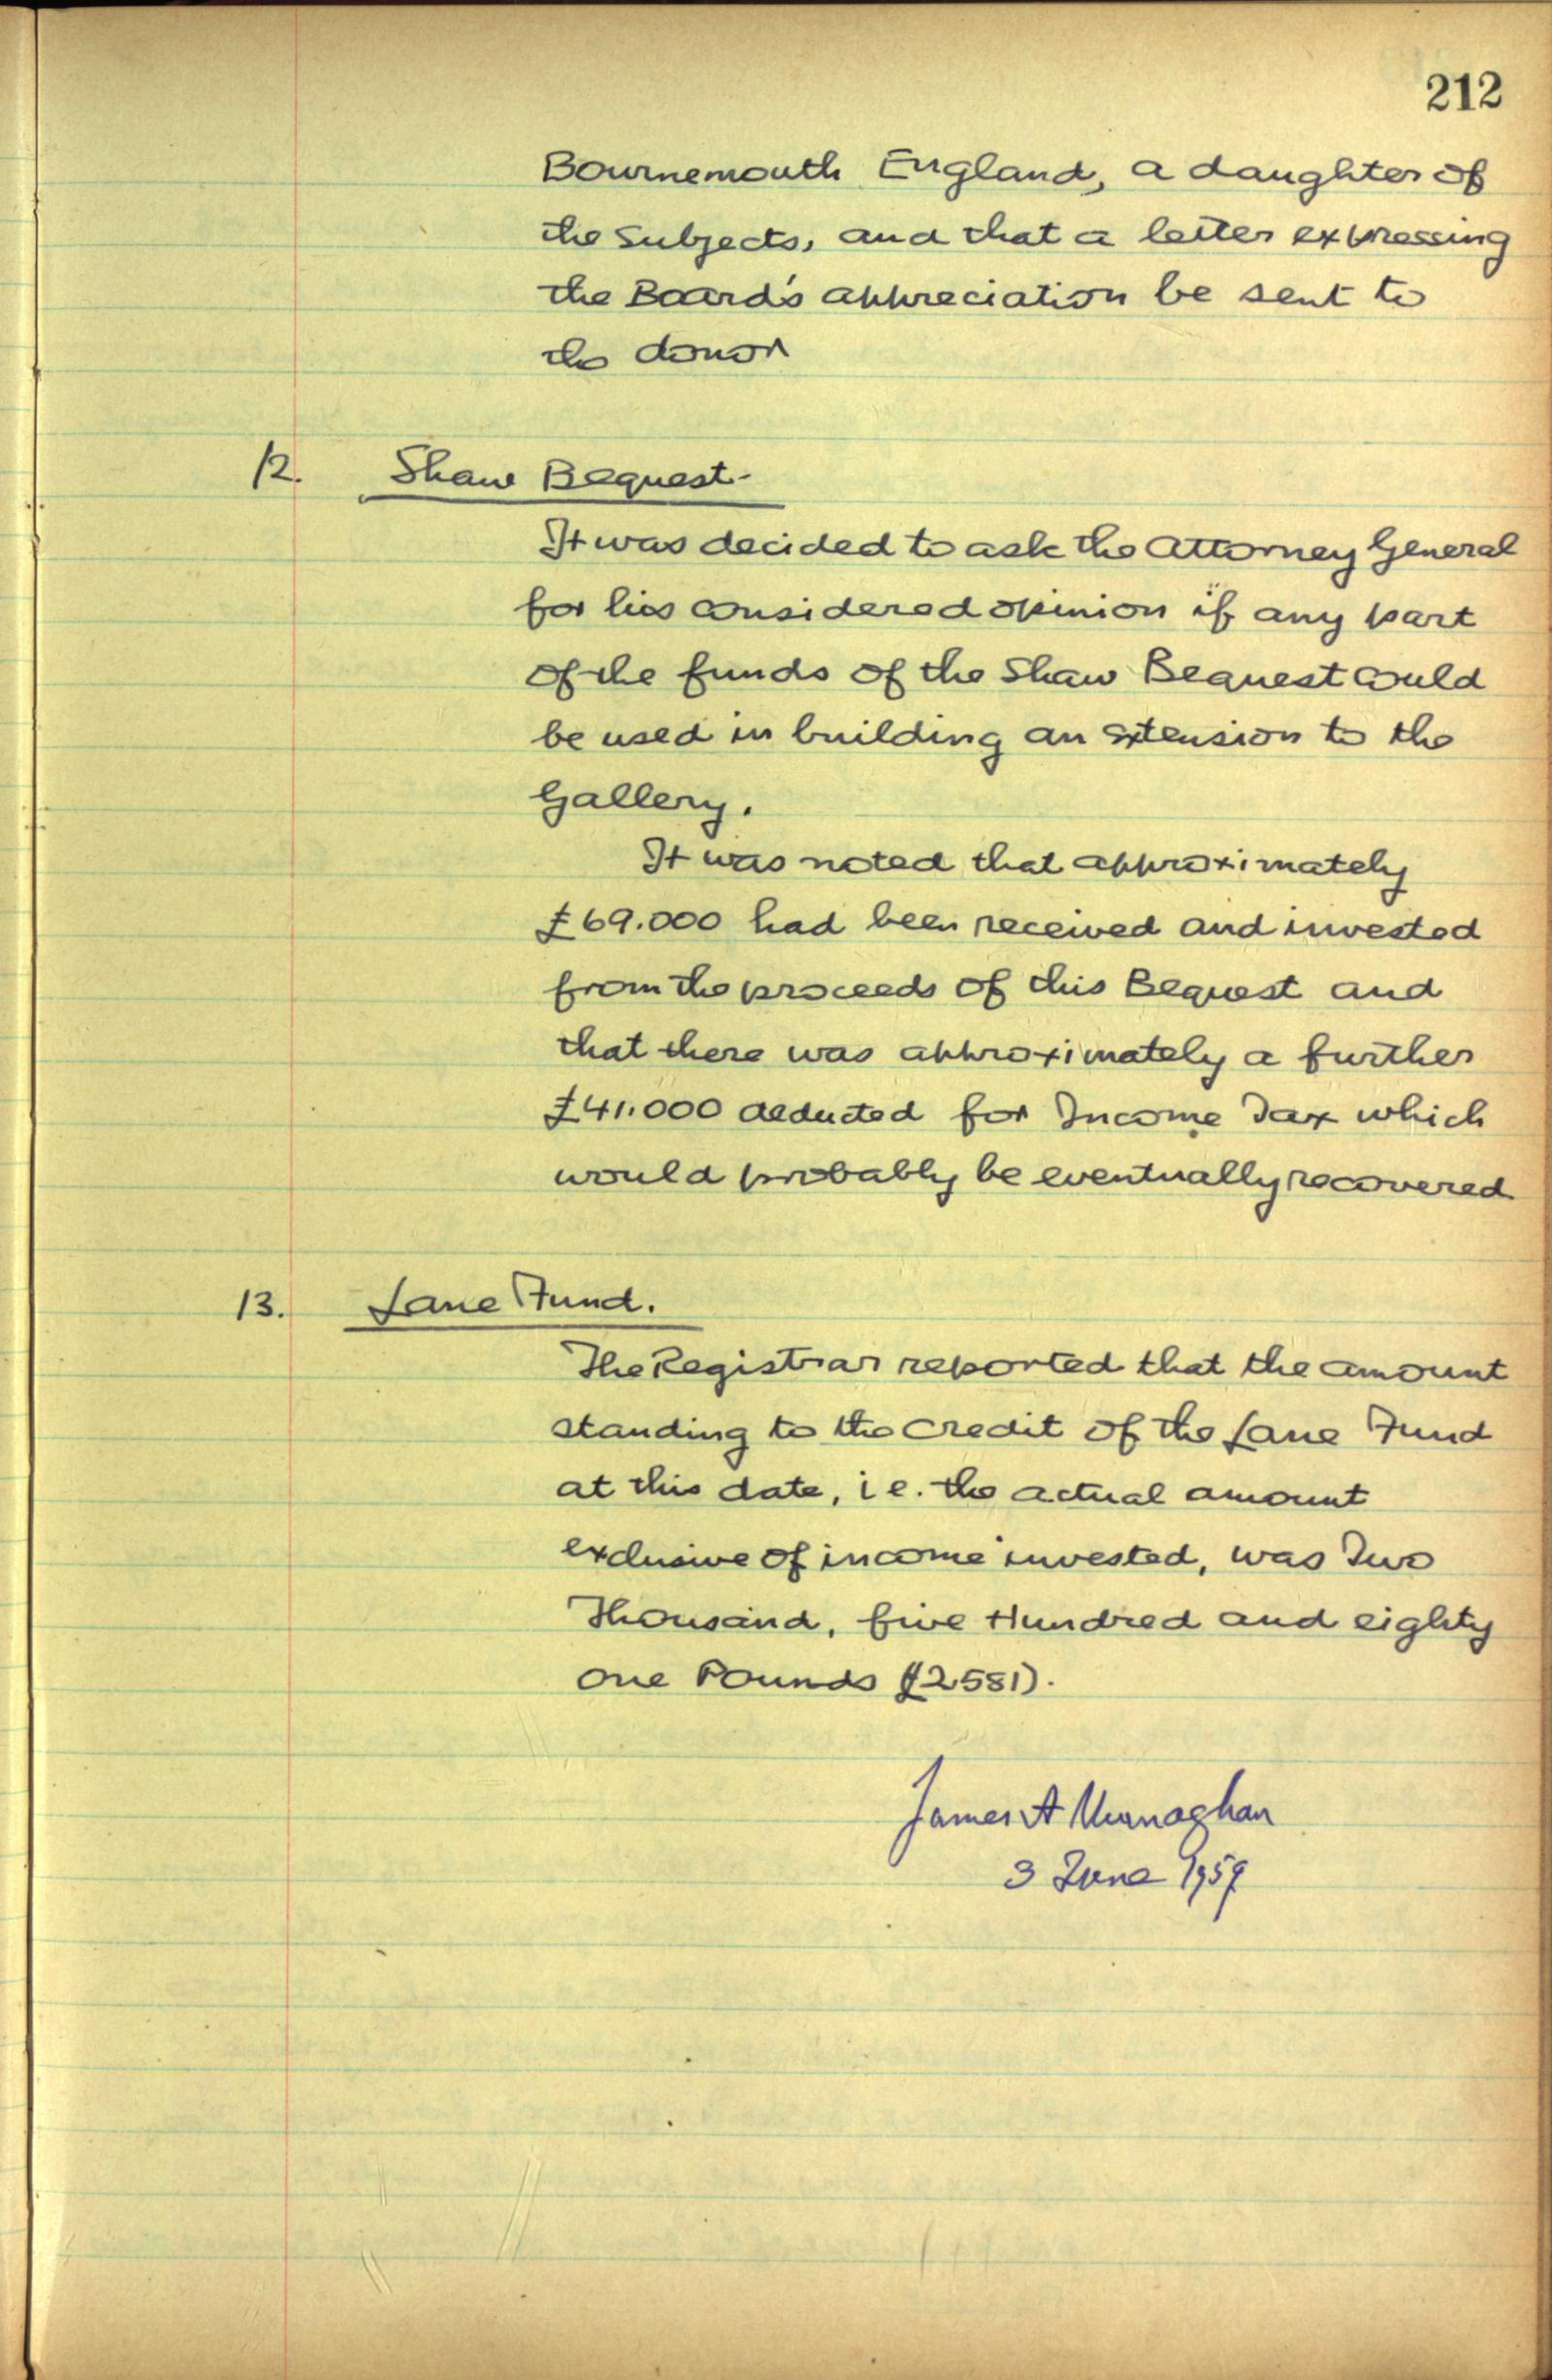 212
Bournemouth England, a daughter of
the Subjects, and that a letter expressing
the Board's appreciation be sent to
the donor
12. Shaw Bequest-
It was decided to ask the Attorney General
for his considered opinion if any part
of the funds of the Shaw Bequest could
be used in building an extension to the
Gallery.
It was noted that approximately
£69.000 had been received and invested
from the proceeds of this Bequest and
that there was approximately a further
£41.000 deducted for Income Tax which
would probably be eventually recovered
13. Lane Fund.
The Registrar reported that the amount
standing to the credit of the Lane Fund
at this date, i e. the actual amount
exclusive of income invested, was Two
Thousand, five Hundred and eighty
one Pounds (£2581).
James A Murnaghan
3 June 1959